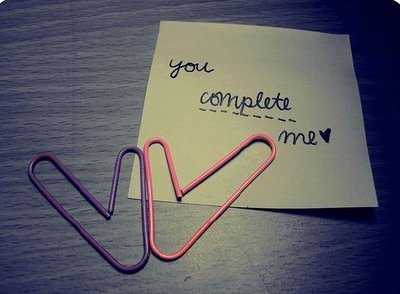 you
complete
me♥